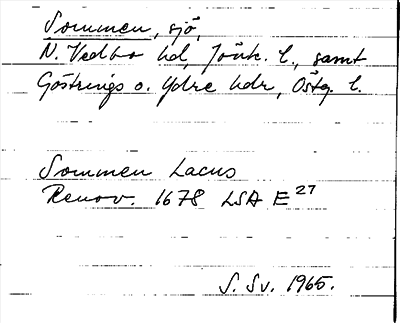 Sommen, sjö,
N. Vedbo hd, Jönk. l., samt
Göstrings o. Ydre hdr, Östg. l.
Sommen Lacus
Renov. 1678 LSA E 27
S. Sv. 1965.